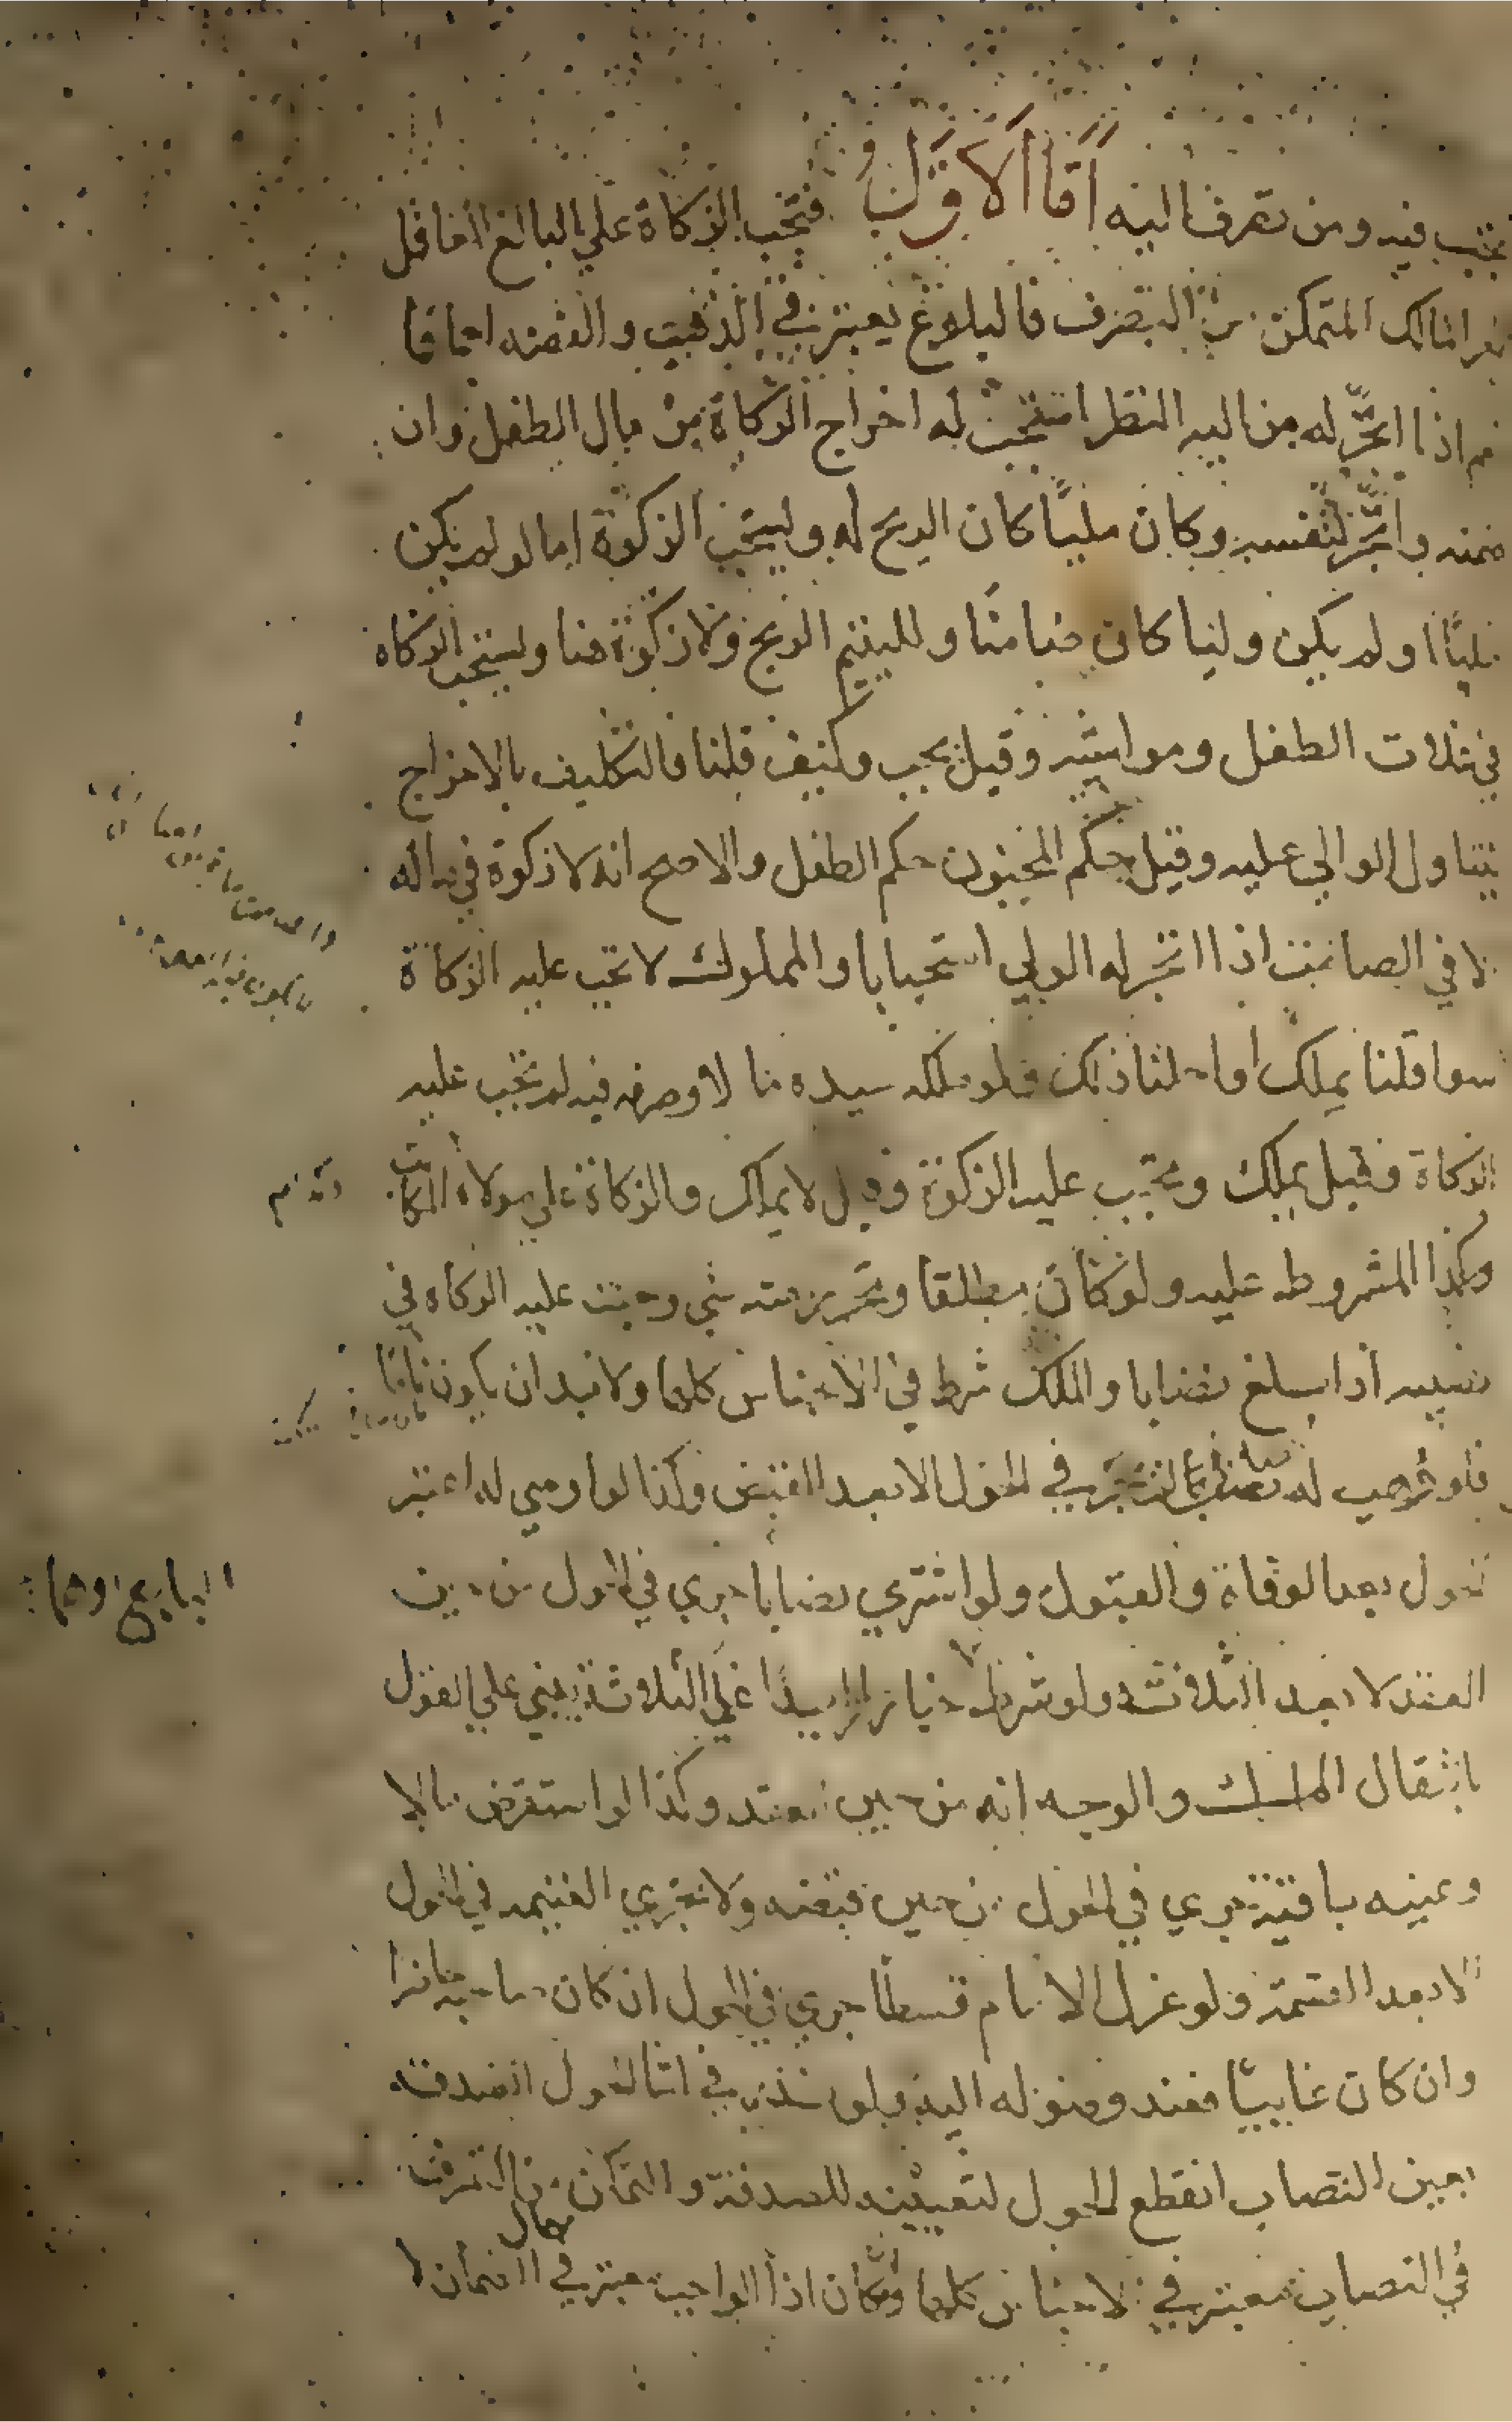 تجب فيه ومن تصرف اليه اما الاول فتجب الزكاة على البالغ العاقل
الحر المالك المتمكن من التصرف فالبلوغ يعتبر في الذهب والفضه اجماعا
نعم اذا اتجر له من اليه النظر استحب له اخراج الزكاة من مال الطفل وان
ضمنه واتجر لنفسه وكان مليًا كان الربح له ويستحب الزكوة اما لو لم يكن
مليًا او لم يكن وليا كان ضامنا ولليتيم الربح ولا زكوة هنا ويستحب الزكاة
في غلات الطفل ومواشيه وقيل يجب وكيف قلنا فالتكليف بالاخراج
يتناول الوالي عليه وقيل حكم المجنون حكم الطفل والاصح انه لا زكوة في ماله
الا في الصامت اذا اتجر له الولي استحبابا والمملوك لا تجب عليه الزكاة
سوا قلنا يملك او احلنا ذلك فلو ملكه سيده مالا وصرفه فيه لم تجب عليه
الزكاة وقيل يملك وتجب عليه الزكوة وقيل لا يملك والزكاة على مولاه المكاتب
وكذا المشروط عليه ولو كان مطلقا وتحرر منه شي وجبت عليه الزكاه في
نصيبه اذا بلغ نصابا والملك شرط في الاجناس كلها ولا بد ان يكون تاما
فلو وهب له نصاب لم يجر في الحول الا بعد القبض وكذا لو اوصي له اعتبر
الحول بعد الوفاة والقبول ولو اشتري نصابا جري في الحول من حين
العقد لا بعد الثلاثه ولو شرط خيارا زايدا على الثلاثة يبني على القول
بانتقال الملك والوجه انه من حين العقد وكذا لو استقرض مالا
وعينه باقية جري في الحول من حين قبضه ولا تجري الغنيمه في الحول
الا بعد القسمة ولو عزل الامام قسطا جري في الحول ان كان صاحبه حاضرا
وان كان غايبًا فعند وصوله اليه ولو نذر في اثنا الحول الصدقه
بعين النصاب انقطع الحول لتعيينه للصدقة والتمكن من التصرف
في النصاب معتبر في الاجناس كلها وامكان ادا الواجب معتبر في الضمان لا
البايع او هما